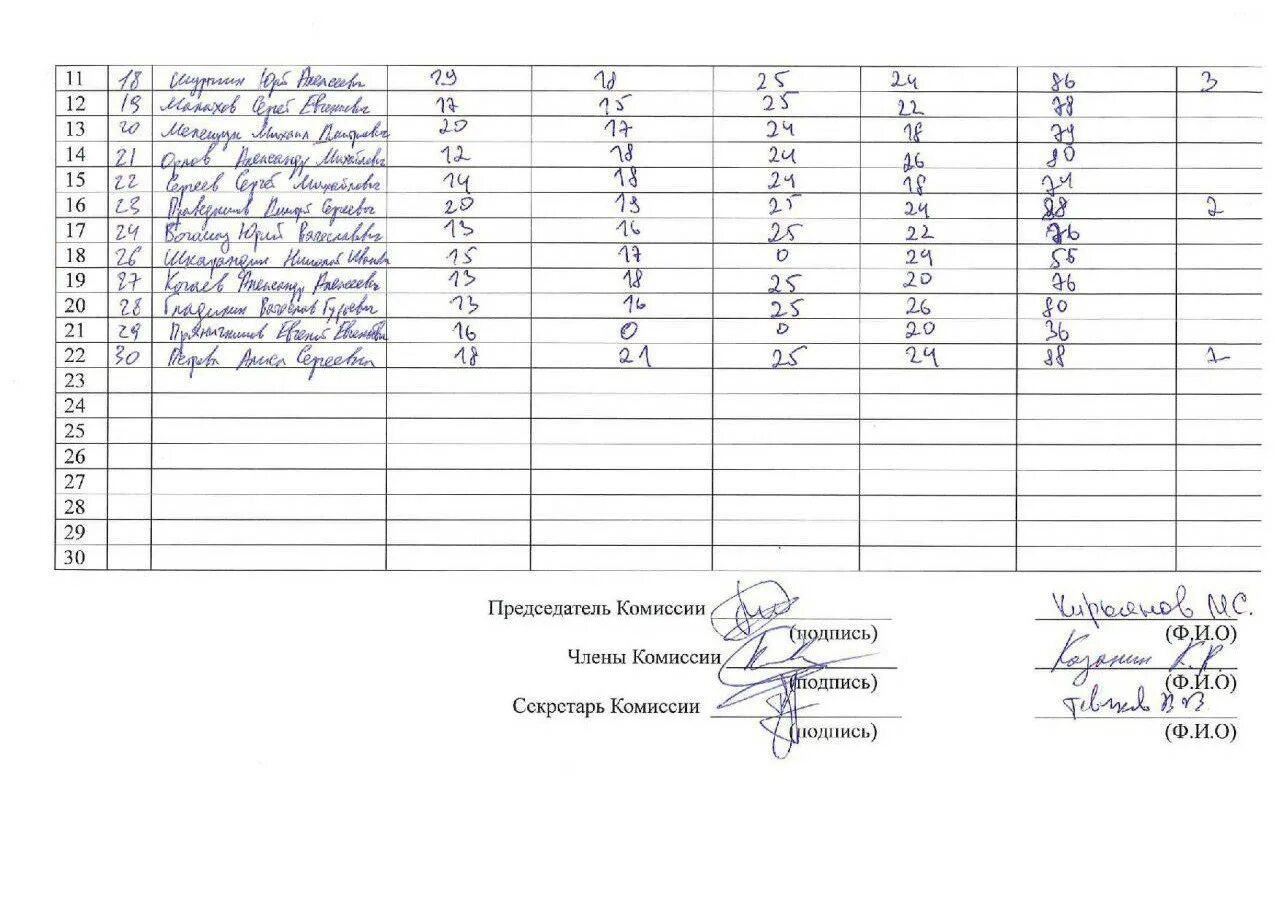 11 18 Юрий Алексеевич 19 18 25 24 86 3
12 19 Малахов Сергей Евгениевич 17 15 25 22 79
13 20 Мелещук Михаил Дмитриевич 20 17 24 18 79
14 21 Орлов Александр Михайлович 12 18 24 26 80
15 22 Сергеев Сергей Михайлович 14 18 24 18 74
16 23 Сергеевич 20 19 25 24 88 2
17 24 Юрий Вячеславович 13 16 25 22 76
18 26 Николай 15 17 0 24
19 27 Когаев Александр Алексеевич 13 18 25 20 76
20 28 Гладилин Вячеслав Гурьевич 13 16 25 26 80
21 29 Пряничников Евгений Евгеньевич 16 0 0 20 36
22 30 Сергеевна 18 21 25 24 88 1
23
24
25
26
27
28
29
30
Председатель Комиссии М.С.
(подпись) (Ф.И.О)
Члены Комиссии Казанин К.Р.
(подпись) (Ф.И.О)
Секретарь Комиссии
(подпись) (Ф.И.О)